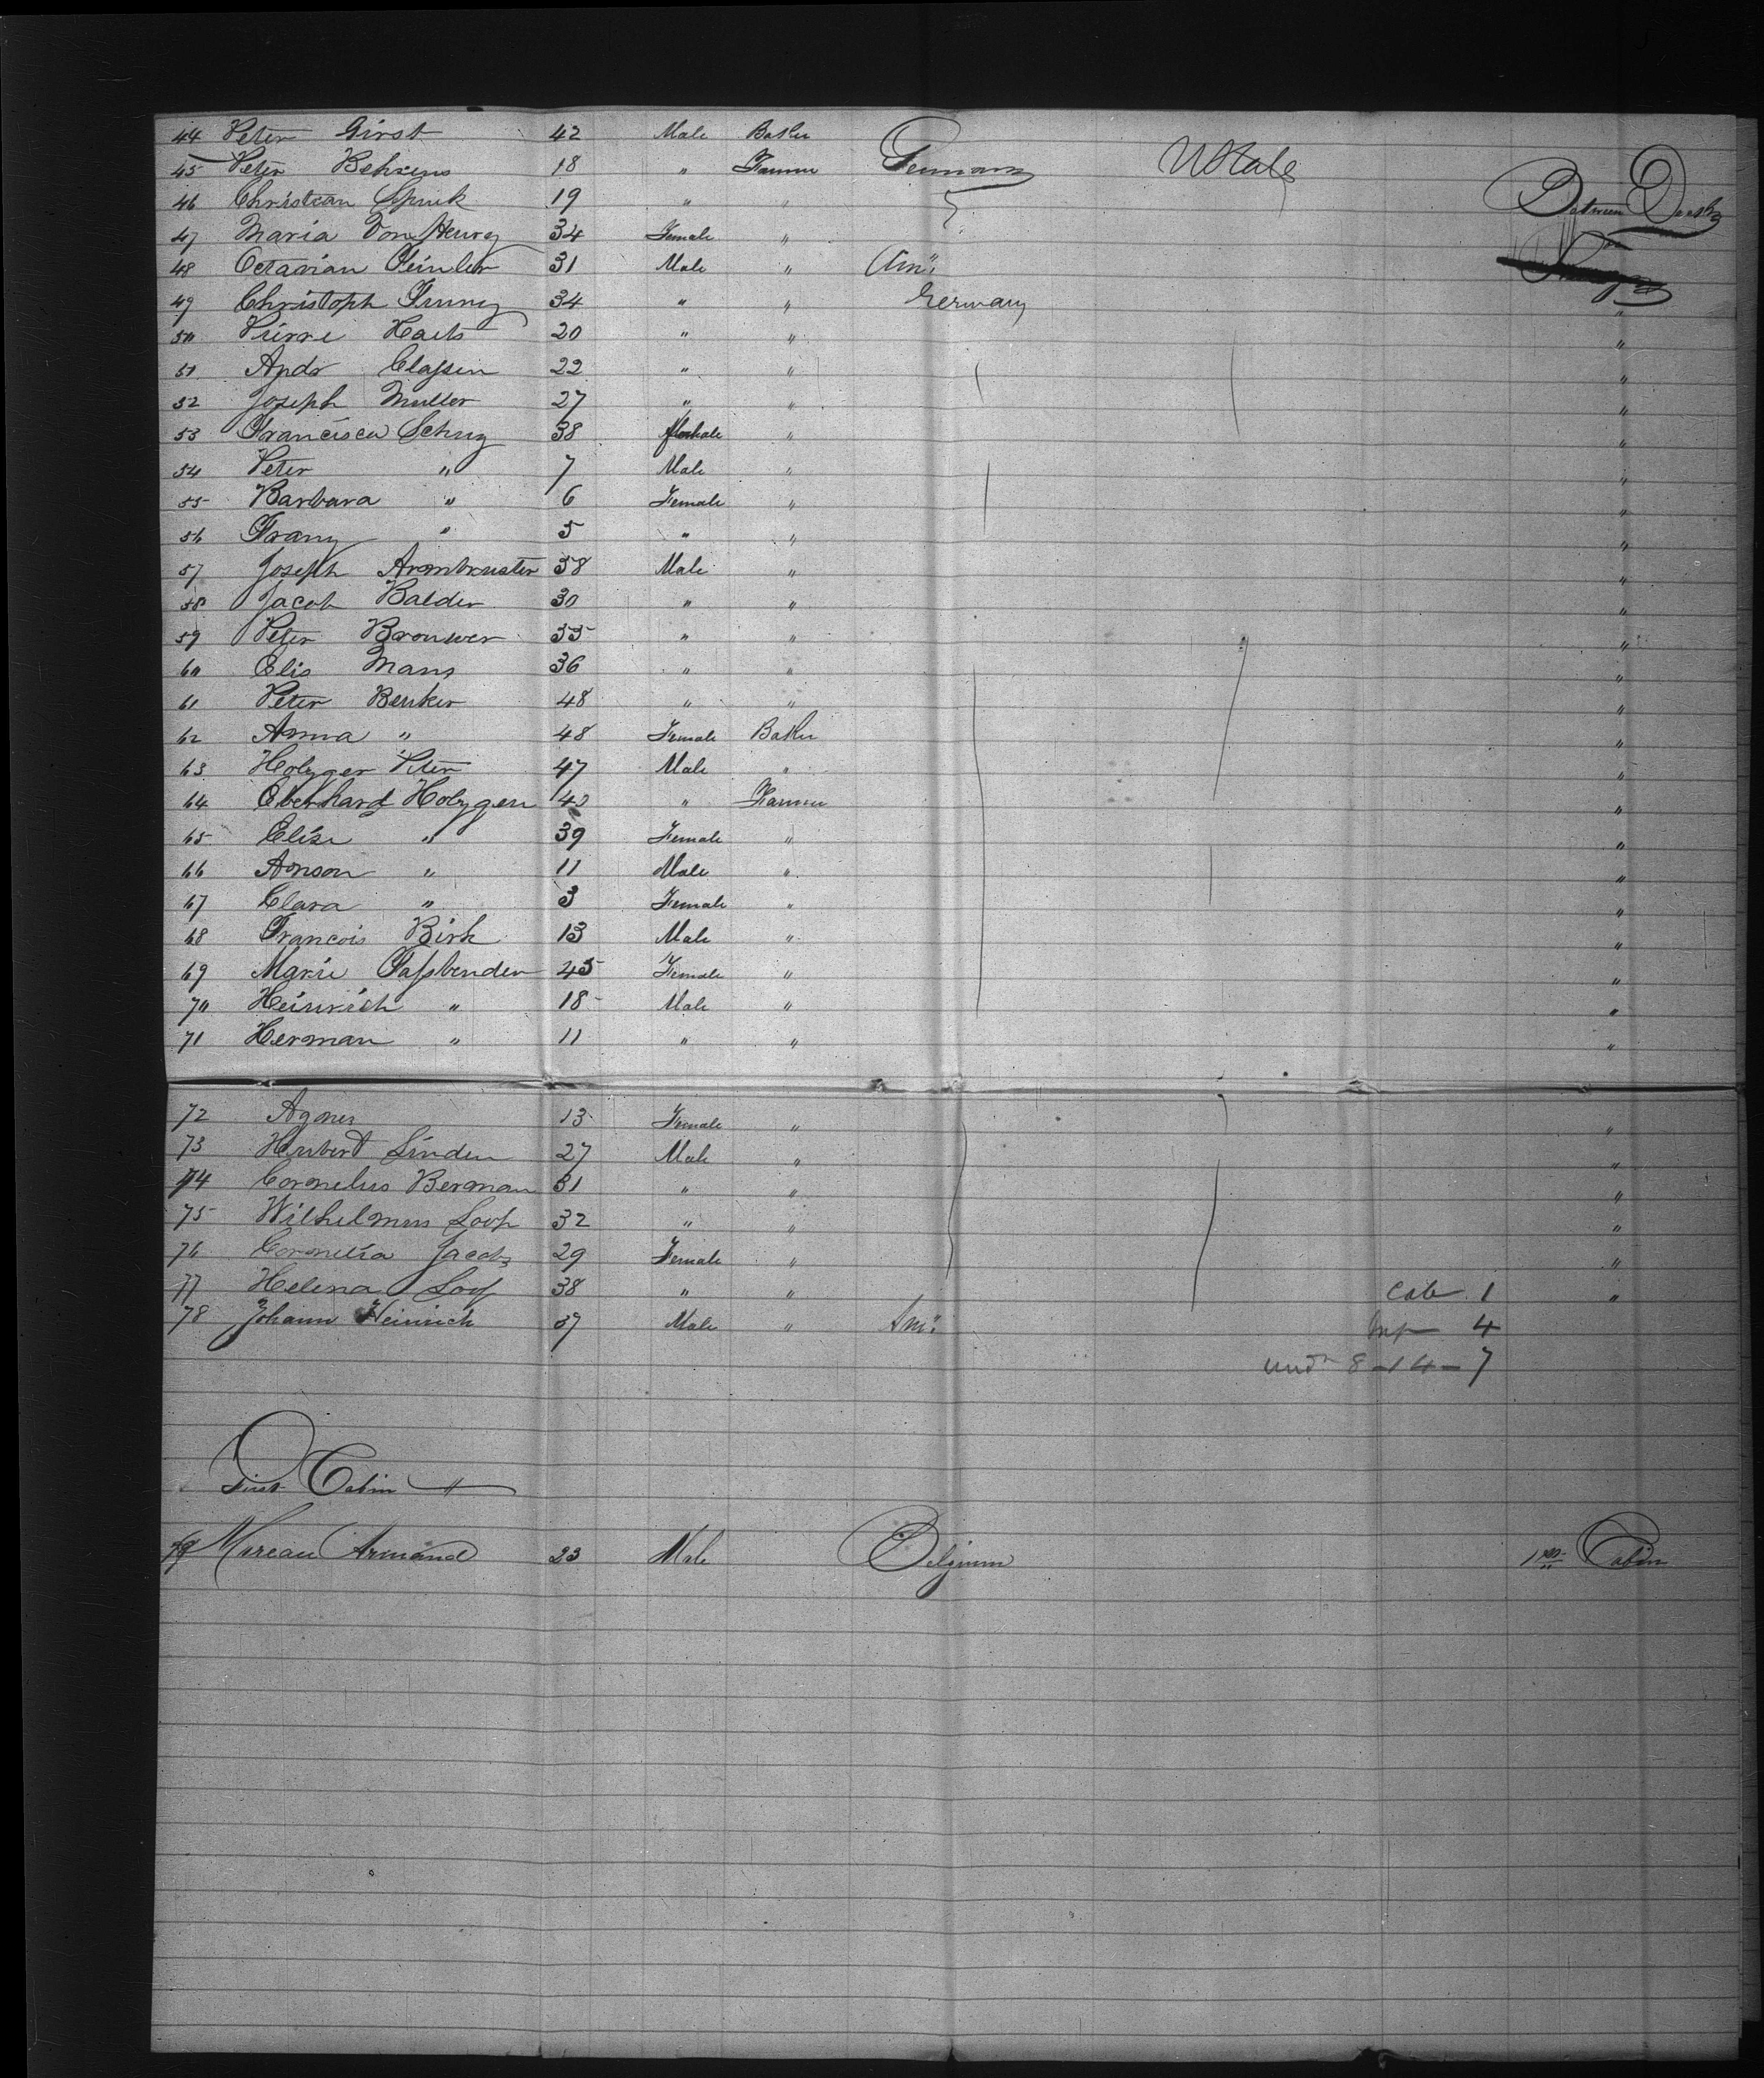 44 Peter Girst 42 Male Baker
45 Peter Behrens 18 " Farmer Germany U States Between Decks
46 Christian Spink 19 " "
47 Maria Von Heury 34 Female "
48 Octavian Feinler 31 Male " Am"
49 Christoph 34 " " Germany "
50 Pierre Haets 20 " " "
51 Andr Claſsen 22 " " "
52 Joseph Muller 27 " " "
53 Francisca Schuz 38 Female " "
54 Peter " 7 Male " "
55 Barbara " 6 Female " "
56 Franz " 5 " " "
57 Joseph Armbruster 38 Male " "
58 Jacob Balder 30 " " "
59 Peter Brouwer 35 " " "
60 Elis Mans 36 " " "
61 Peter Benker 48 " " "
62 Anna " 48 Female Baker "
63 Holzger Peter 47 Male " "
64 Eberhard Holzgen 40 " Farmer "
65 Elise " 39 Female " "
66 Anson " 11 Male " "
67 Clara " 3 Female " "
68 Francois Birk 13 Male " "
69 Marie Faſsbender 45 Female " "
70 Heinrich " 18 Male " "
71 Herman " 11 " " "
72 Agnes 13 Female " "
73 Hubert Linden 27 Male " "
74 Cornelius Berman 31 " " "
75 Wilhelmus Loop 32 " " "
76 Cornelia Jacobs 29 Female " "
77 Helena Loof 38 " " Cab 1 "
78 Johann Heinrich 37 Male " Am" Inf 4
und 8 - 14 - 7
First Cabin "
79 Mureau Armand 23 Male Belgium 1 Cabin